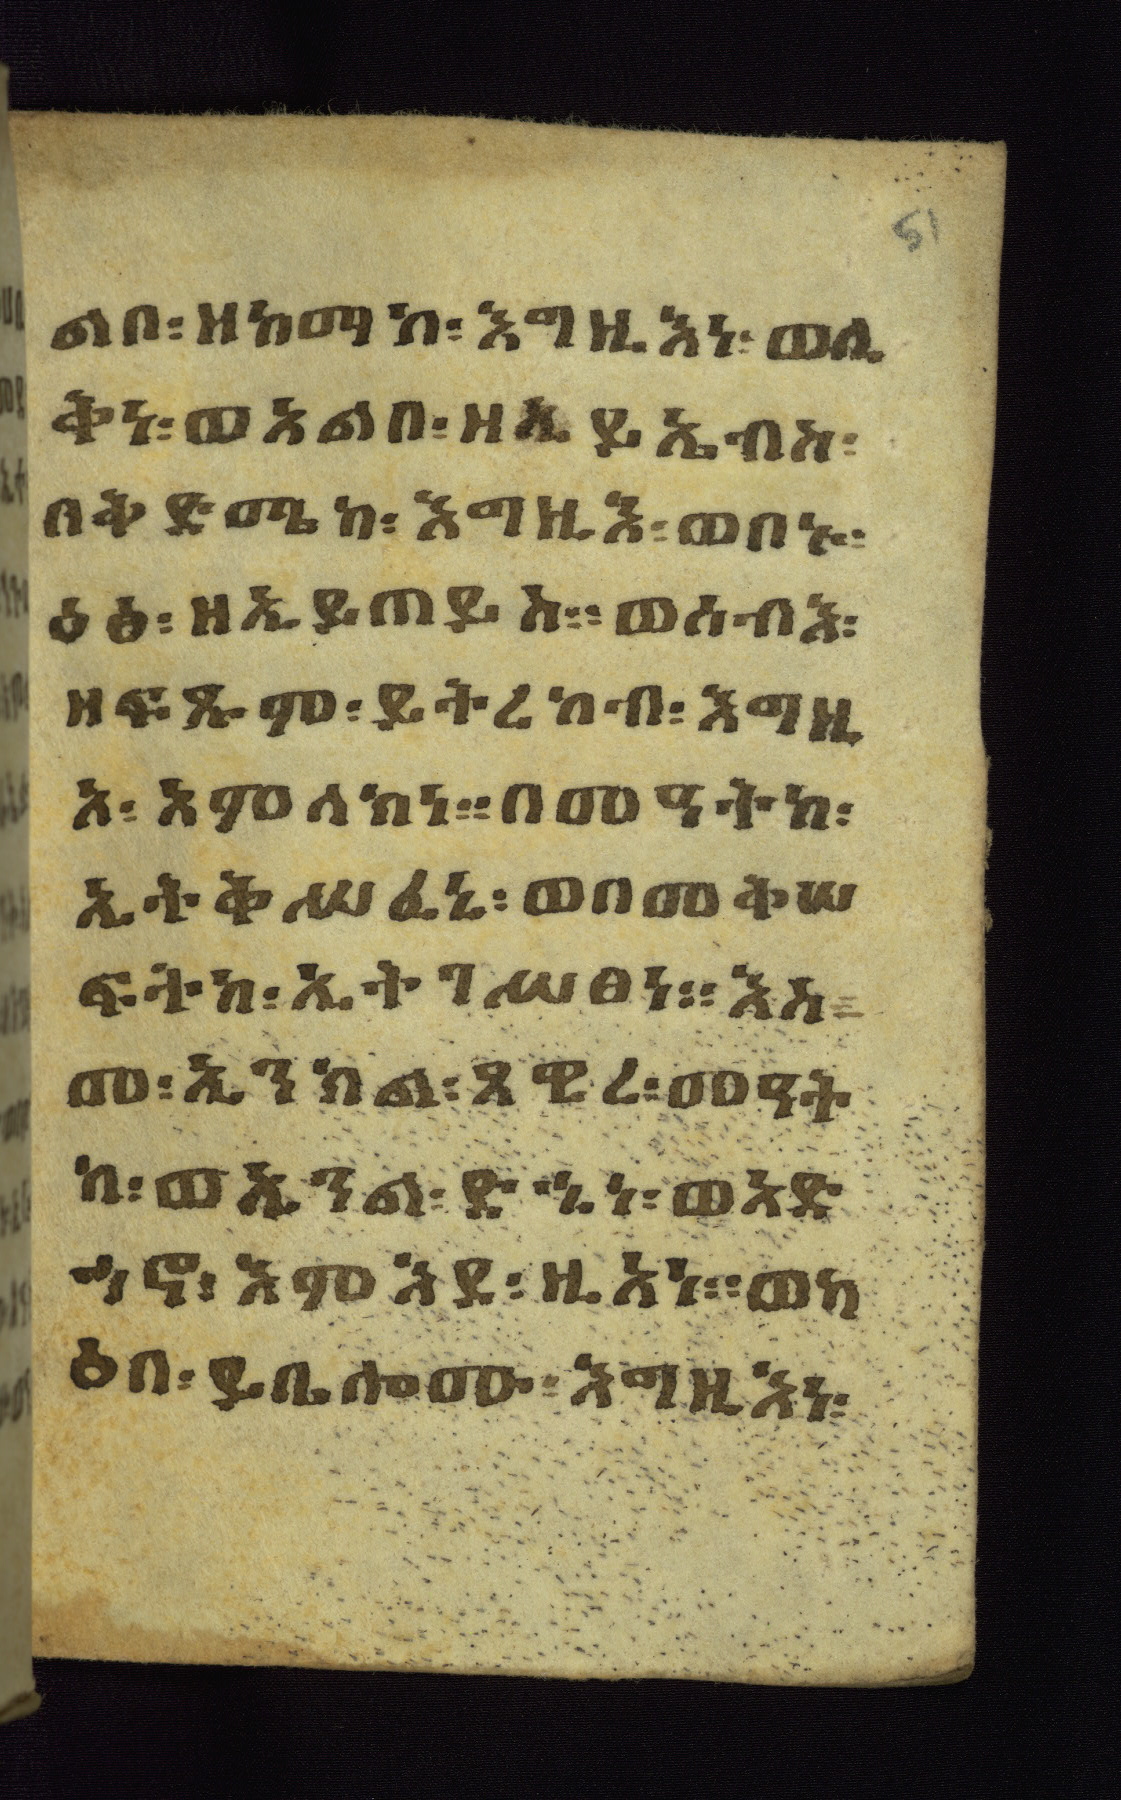 51
ልቦ፡ ዘከማከ፡ እግዚእነ፡ ወሊ
ቅነ፡ ወአልቦ፡ ዘኢይኤብስ፡
በቅድሜከ፡ እግዚእ፡ ወበኑ፡
ዕፅ፡ ዘኢይጠይስ። ወሰብእ፡
ዘፍጹም፡ ይትረከብ፡ እግዚ
እ፡ አምላክነ። በመዓትከ፡
ኢትቅሥፈኒ፡ ወበመቅሠ
ፍትከ፡ ኢትገሥፀነ። እስ
መ፡ ኢንክል፡ ጸዊረ፡ መዓት
ከ፡ ወኢንል፡ ድኂነ፡ ወአድ
ኅኖ፡ እምእደ፡ ዚአነ። ወካ
ዕበ፡ ይቤሎሙ፡ እግዚእነ፡